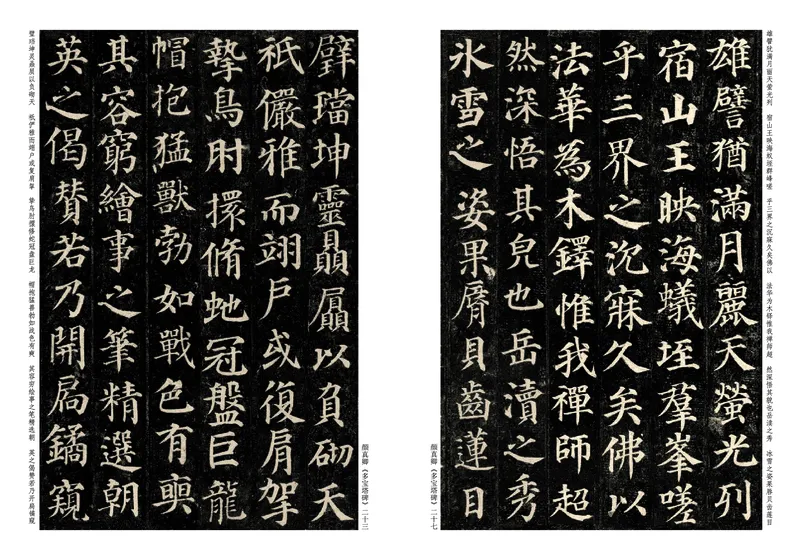 雄譬犹满月丽天萤光列　宿山王映海蚁垤群峰嗟　乎三界之沉寐久矣佛以　法华为木铎惟我禅师超　然深悟其貌也岳渎之秀　冰雪之姿果唇贝齿莲目
雄譬猶滿月麗天螢光列
宿山王映海蟻垤群峯嗟
乎三界之沉寐久矣佛以
法華為木鐸惟我禪師超
然深悟其皃也岳瀆之秀
氷雪之姿果脣貝齒蓮目
顏真卿《多宝塔碑》二十七
顏真卿《多宝塔碑》二十三
璧璫坤靈贔屭以負砌天
祇儼雅而翊戶或復肩拏
摯鳥肘擐脩虵冠盤巨龍
帽抱猛獸勃如戰色有奭
其容窮繪事之筆精選朝
英之偈贊若乃開扃鐍窺
璧珰坤灵赑屃以负砌天　祇俨雅而翊户或复肩拏　挚鸟肘擐修蛇冠盘巨龙　帽抱猛兽勃如战色有奭　其容穷绘事之笔精选朝　英之偈赞若乃开扃鐍窥